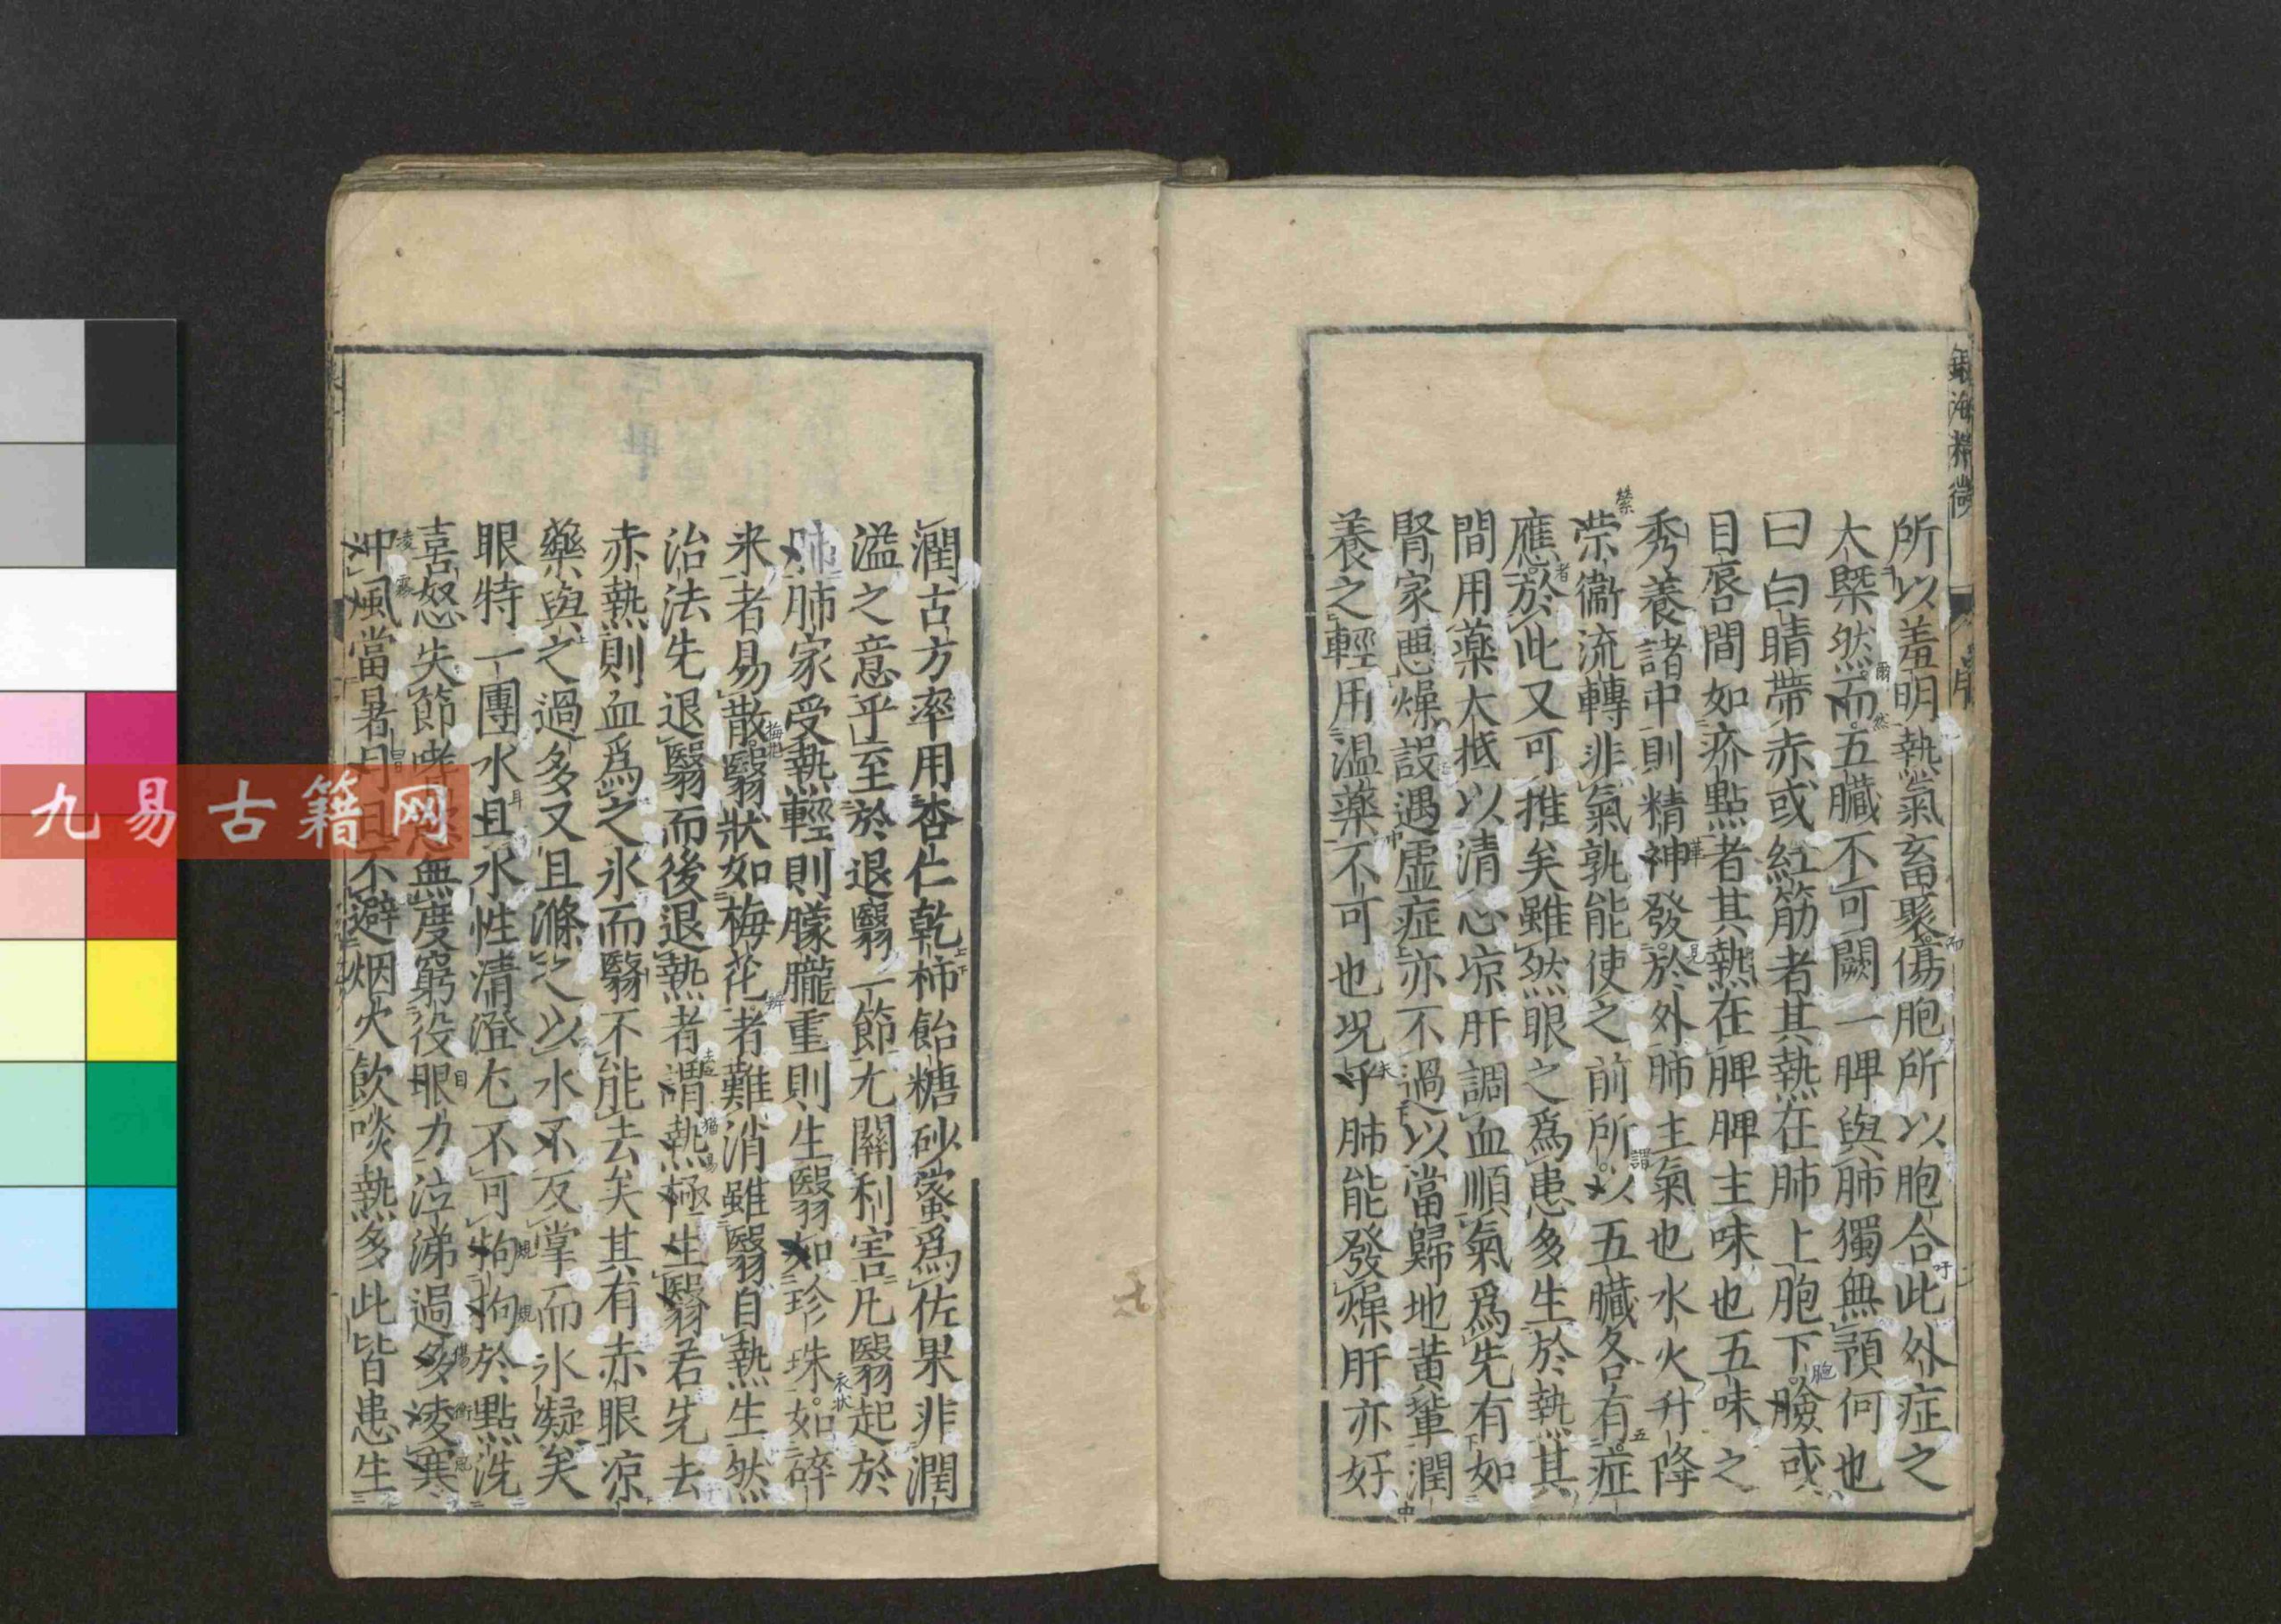 銀海精微
所以羞明熱氣畜聚傷胞所以胞合此外症之
大槩然而五臟不可闕一脾與肺獨無預何也
曰白睛帶赤或紅筋者其熱在肺上胞下臉或
目唇間如疥點者其熱在脾脾主味也五味之
秀養諸中則精神發於外肺主氣也水火升降
荣衞流轉非氣孰能使之前所以五臟各有症
應於此又可推矣雖然眼之爲患多生於熱其
間用藥大抵以清心凉肝調血順氣爲先有如
腎家悪燥設遇虚症亦不過以當歸地黄軰潤
養之輕用温藥不可也况乎肺能發燥肝亦好
潤古方率用杏仁乾柿飴糖砂蜜爲佐果非潤
溢之意乎至於退翳一節尤關利害凡翳起於
肺肺家受熱輕則朦朧重則生翳如珍珠如碎
来者易散翳狀如梅花者難消雖翳自熱生然
治法先退翳而後退熱者謂熱極生翳若先去
赤熱則血爲之氷而翳不能去矣其有赤眼凉
藥與之過多又且滌之以水不反掌而氷凝矣
眼特一團水且水性清澄尤不可拘拘於點洗
喜怒失節嗜慾無度窮役眼力泣涕過多凌寒
冲風當暑日且不避烟火飲啖熱多此皆患生
九易古籍网